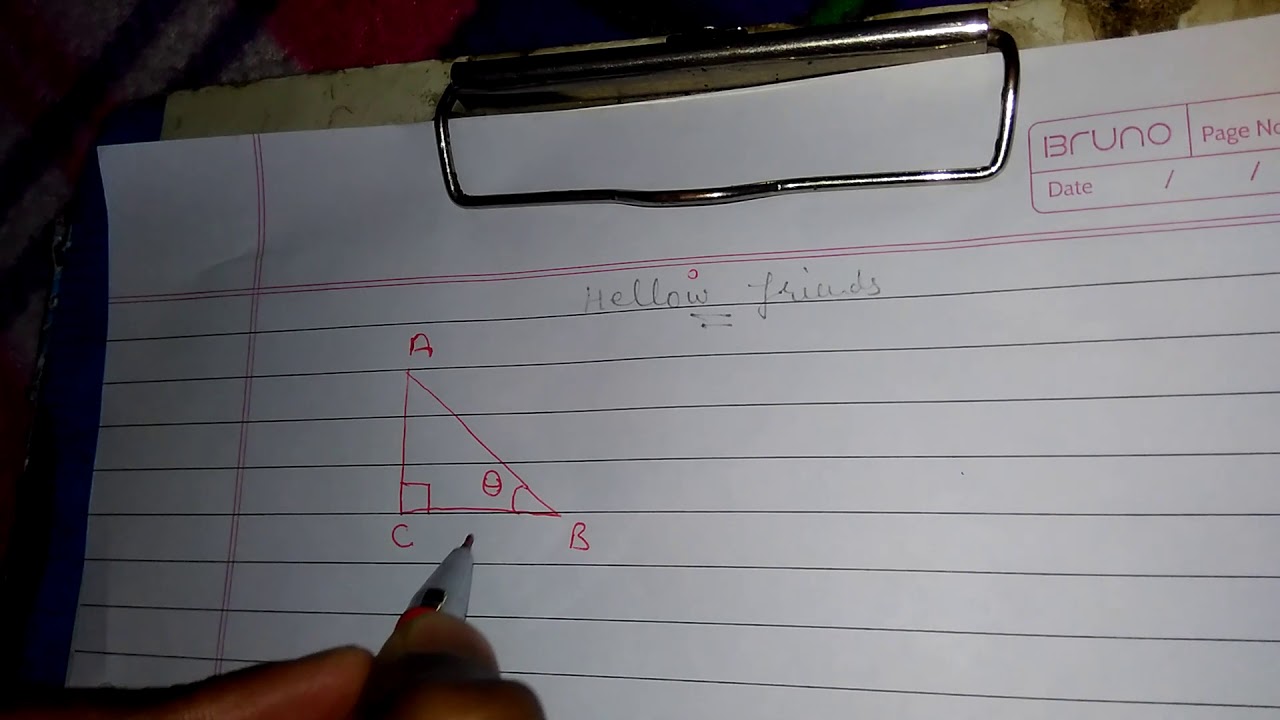 BRUNO Page No
Date / /
Hellow friends
A
θ
C B